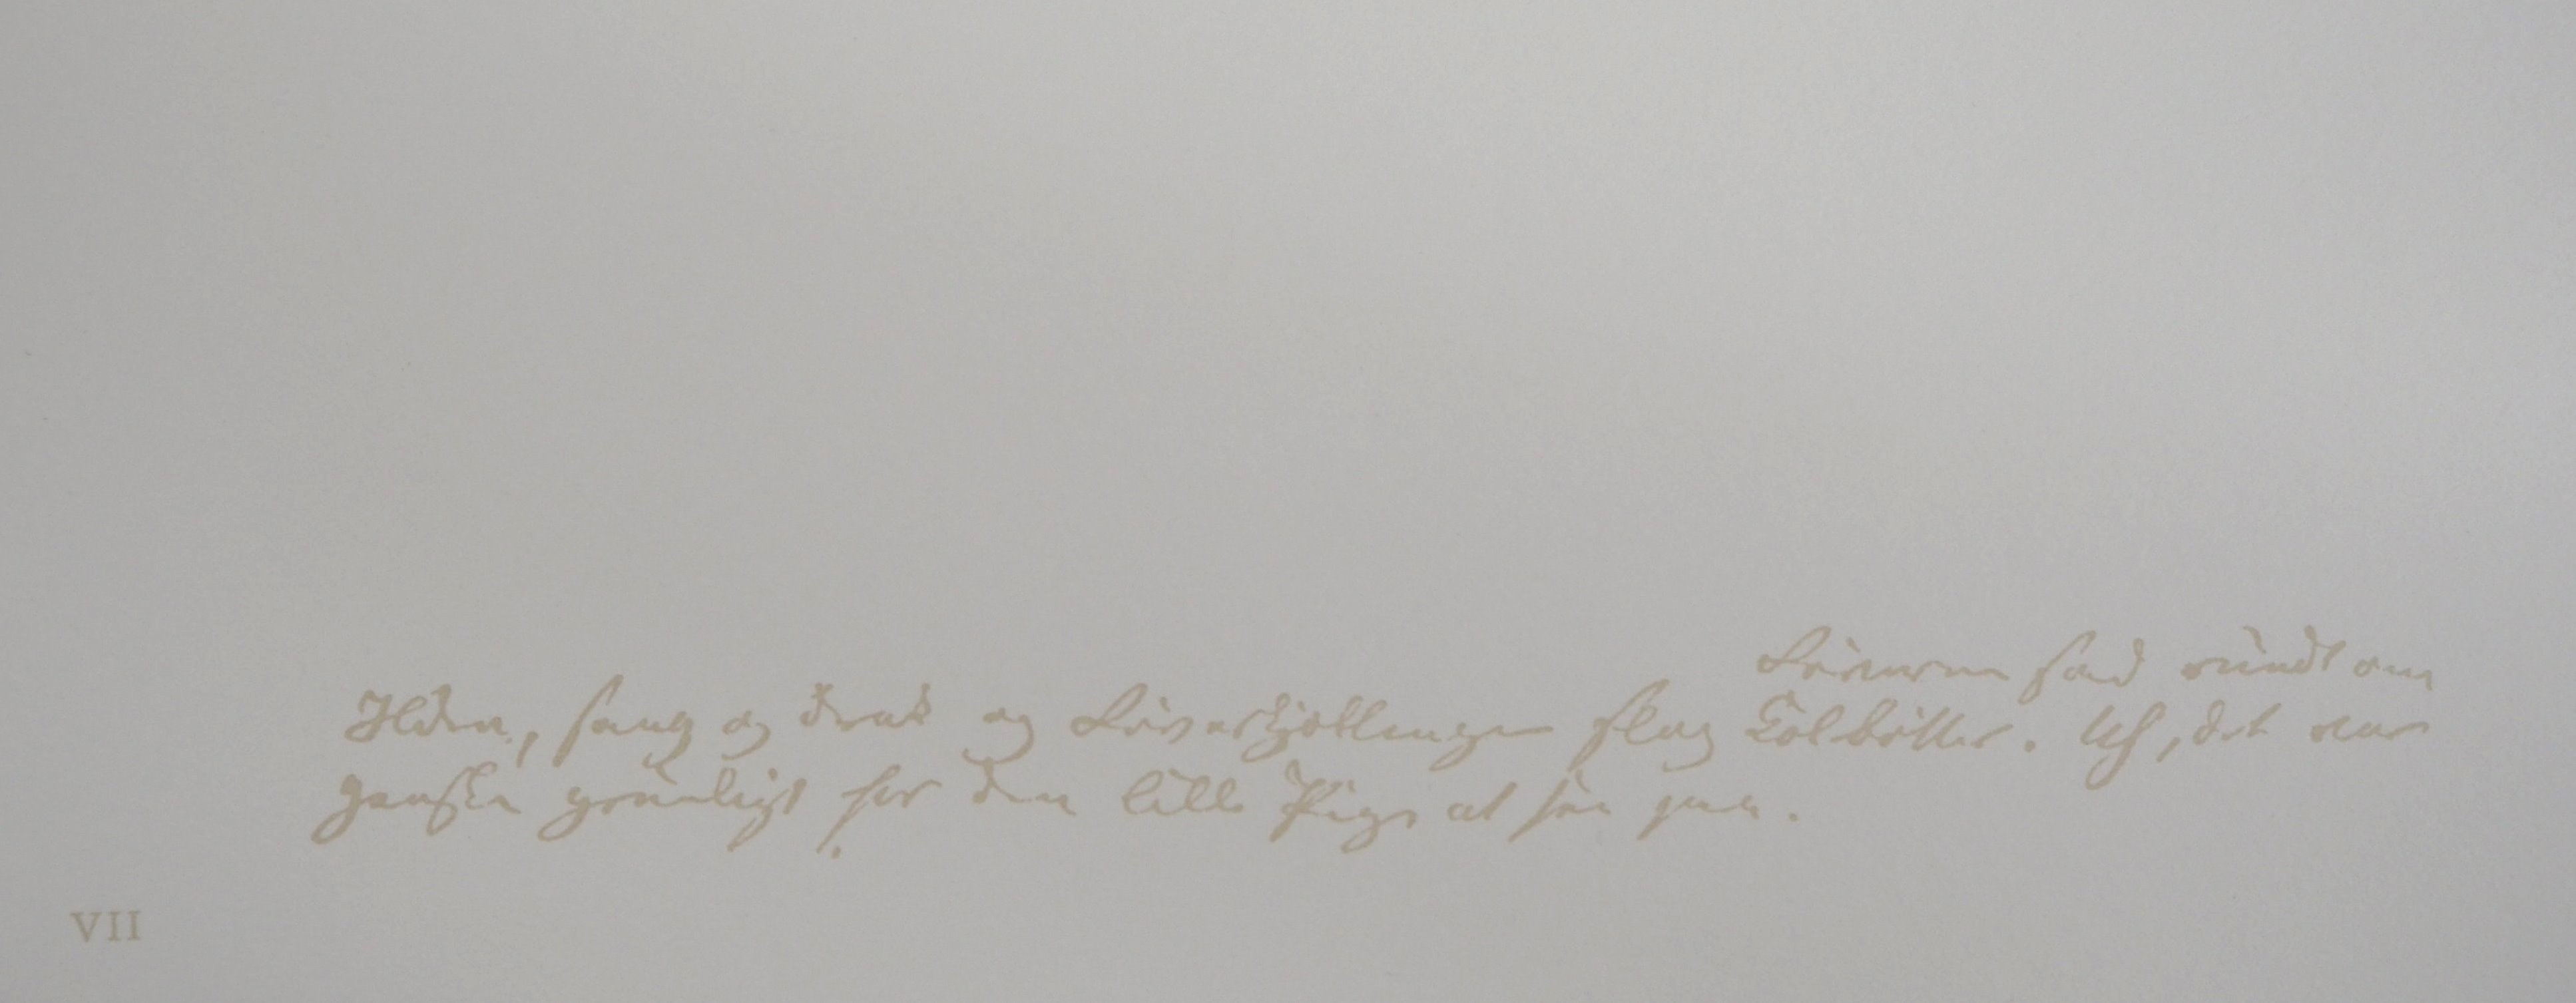 Røverne sad rundt om
Ilden, sang og drak og Røverkjællingen slog Kolbøtter. Uh, det var
ganske grueligt for den lille Pige at see paa.
VII